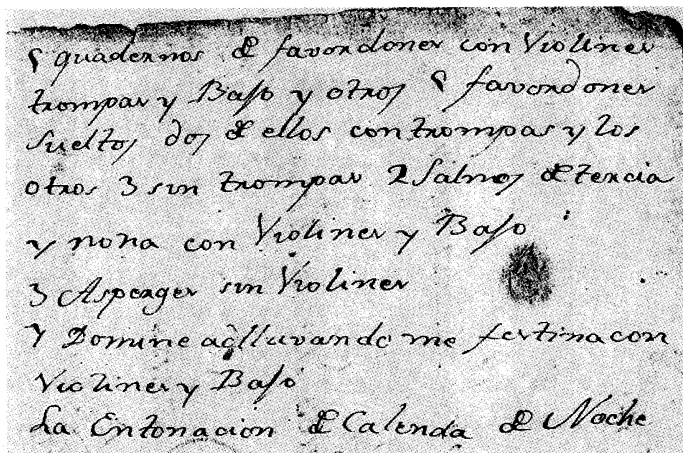 5 quadernos de favordones con Violines
trompas y Baſo y otros 5 favordones
Sueltos dos de ellos con trompas y los
otros 3 sin trompas 2 Salmos de tercia
y nona con Violines y Baſo
3 Asperges sin Violines
Y Domine adlluvando me festina con
Violines y Baſo
La Entonacion de Calenda de Noche